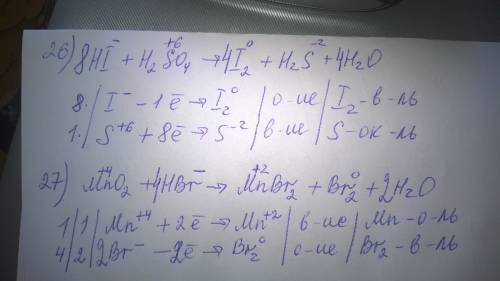 26) 8HI⁻ + H₂S⁺⁶O₄ → 4I₂⁰ + H₂S⁻² + 4H₂O
8. | I⁻ - 1ē → I₂⁰ | о-ие | I₂-в-ль
1. | S⁺⁶ + 8ē → S⁻² | в-ие | S-ок-ль
27) Mn⁺⁴O₂ + 4HBr⁻ → Mn⁺²Br₂ + Br₂⁰ + 2H₂O
1 | 1 | Mn⁺⁴ + 2ē → Mn⁺² | в-ие | Mn-о-ль
4 | 2 | 2Br⁻ - 2ē → Br₂⁰ | о-ие | Br₂-в-ль